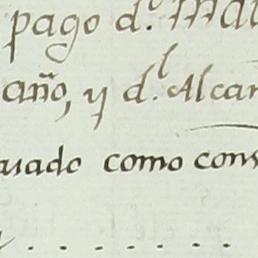 pago d.º Ma
año, y d.ˡ Alcar
uado como cons